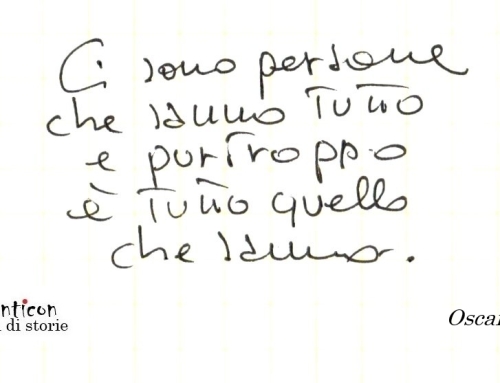 Ci sono persone
che sanno tutto
e purtroppo
è tutto quello
che sanno.
nticon
di storie
Oscar